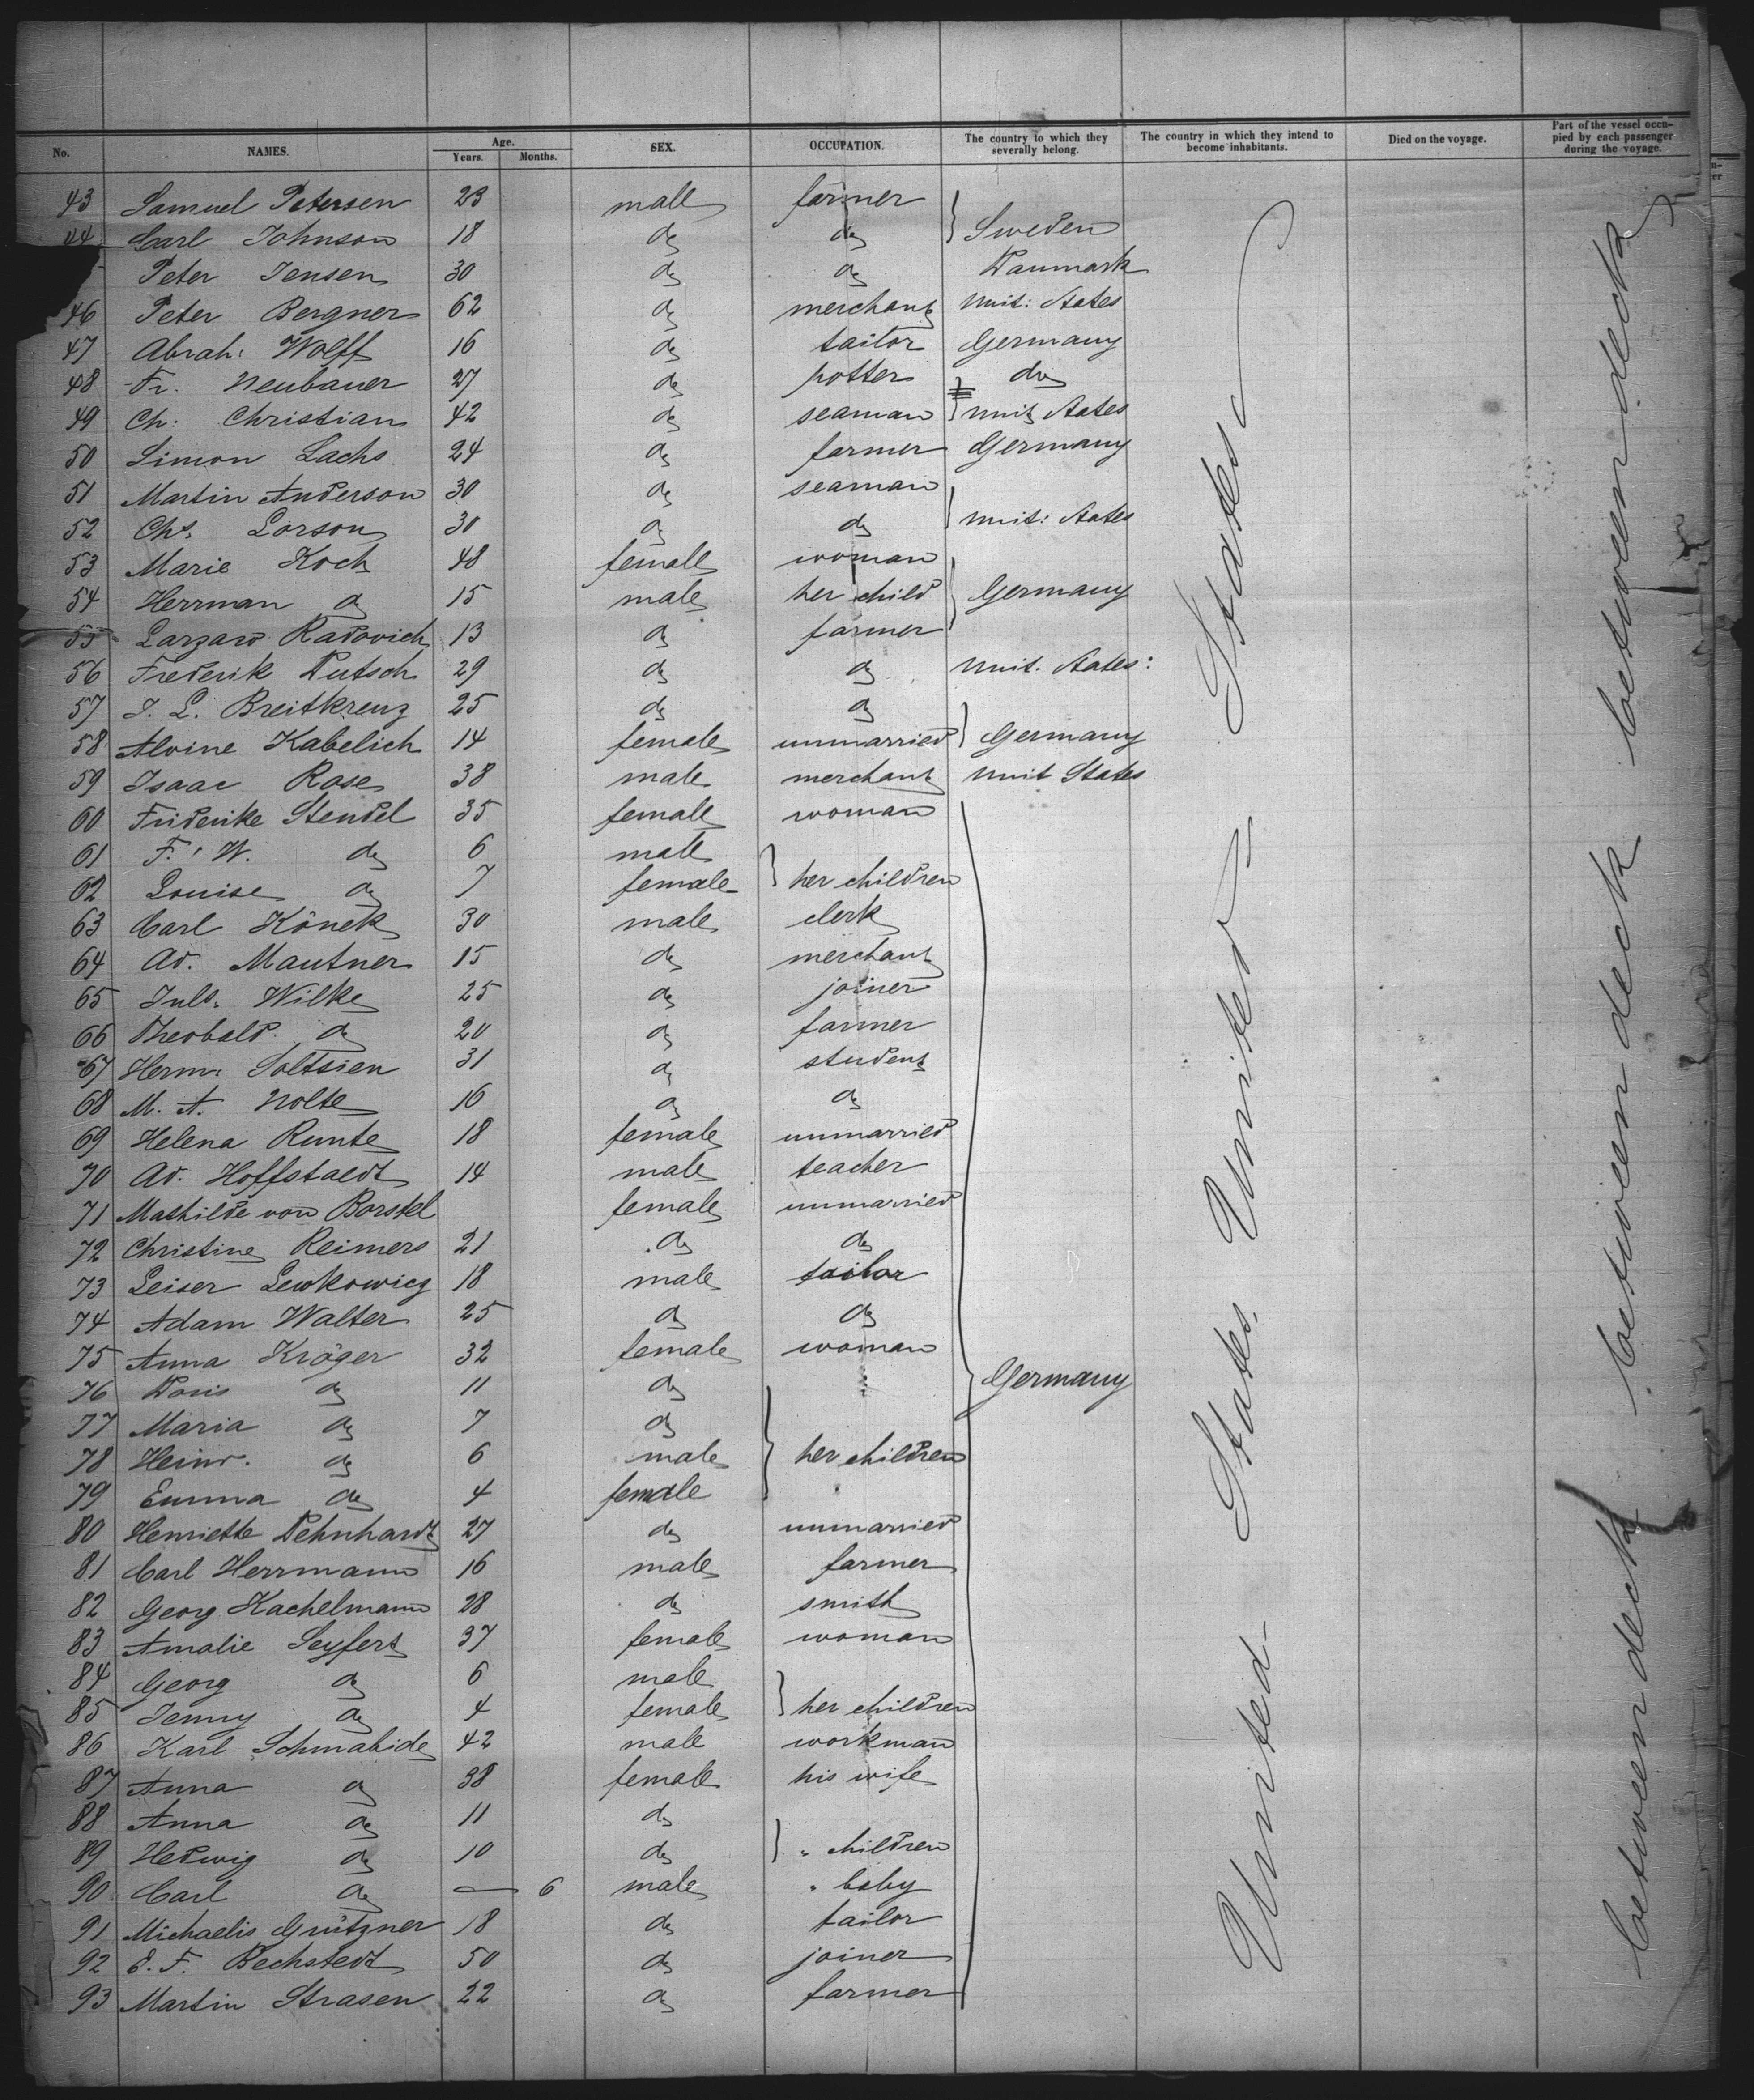 No. NAMES. Age. Years. Months. SEX. OCCUPATION. The country to which they severally belong. The country in which they intend to become inhabitants. Died on the voyage. Part of the vessel occupied by each passenger during the voyage.
43 Samuel Petersen 23 male farmer
44 Carl Johnson 18 do do } Sweden
Peter Jensen 30 do do Danmark
46 Peter Bergner 62 do merchant Unit: States
47 Abrah: Wolff 16 do tailor Germany
48 Fr. Neubauer 27 do potter do
49 Ch: Christian 42 do seaman Unit States
50 Simon Lachs 24 do farmer Germany
51 Martin Anderson 30 do seaman
52 Chs. Lorson 30 do do } Unit: States
53 Marie Koch 48 female woman
54 Herrman do 15 male her child } Germany
55 Larzaro Radovich 13 do farmer
56 Frederik Dutsch 29 do do Unit. States:
57 J. L. Breitkreuz 25 do do
58 Alvine Kabelich 14 female unmarried } Germany
59 Isaac Rose 38 male merchant Unit States
60 Friderike Stendel 35 female woman
61 F. W. do 6 male
62 Louise do 7 female } her children
63 Carl Köneck 30 male clerk
64 Ad. Mautner 15 do merchant
65 Juls. Wilke 25 do joiner
66 Theobald do 20 do farmer
67 Herm: Soltsien 31 do student
68 M. A. Nolte 16 do do
69 Helena Runte 18 female unmarried
70 Ad. Hoffstaedt 14 male teacher
71 Mathilde von Borstel female unmarried
72 Christine Reimers 21 do do
73 Leiser Lewkowicz 18 male tailor
74 Adam Walter 25 do do
75 Anna Kröger 32 female woman
76 Doris do 11 do } Germany
77 Maria do 7 do
78 Heinr. do 6 male } her children
79 Emma do 4 female
80 Henriette Dehnhardt 27 do unmarried
81 Carl Herrmann 16 male farmer
82 Georg Kachelmann 28 do smith
83 Amalie Seyfert 37 female woman
84 Georg do 6 male
85 Jenny do 4 female } her children
86 Karl Schmabide 42 male workman
87 Anna do 38 female his wife
88 Anna do 11 do
89 Hedwig do 10 do } " children
90 Carl do — 6 male " baby
91 Michaelis Grützner 18 do tailor
92 E. F. Bechstedt 50 do joiner
93 Martin Strasen 22 do farmer
United States. United States
between deck between deck between deck